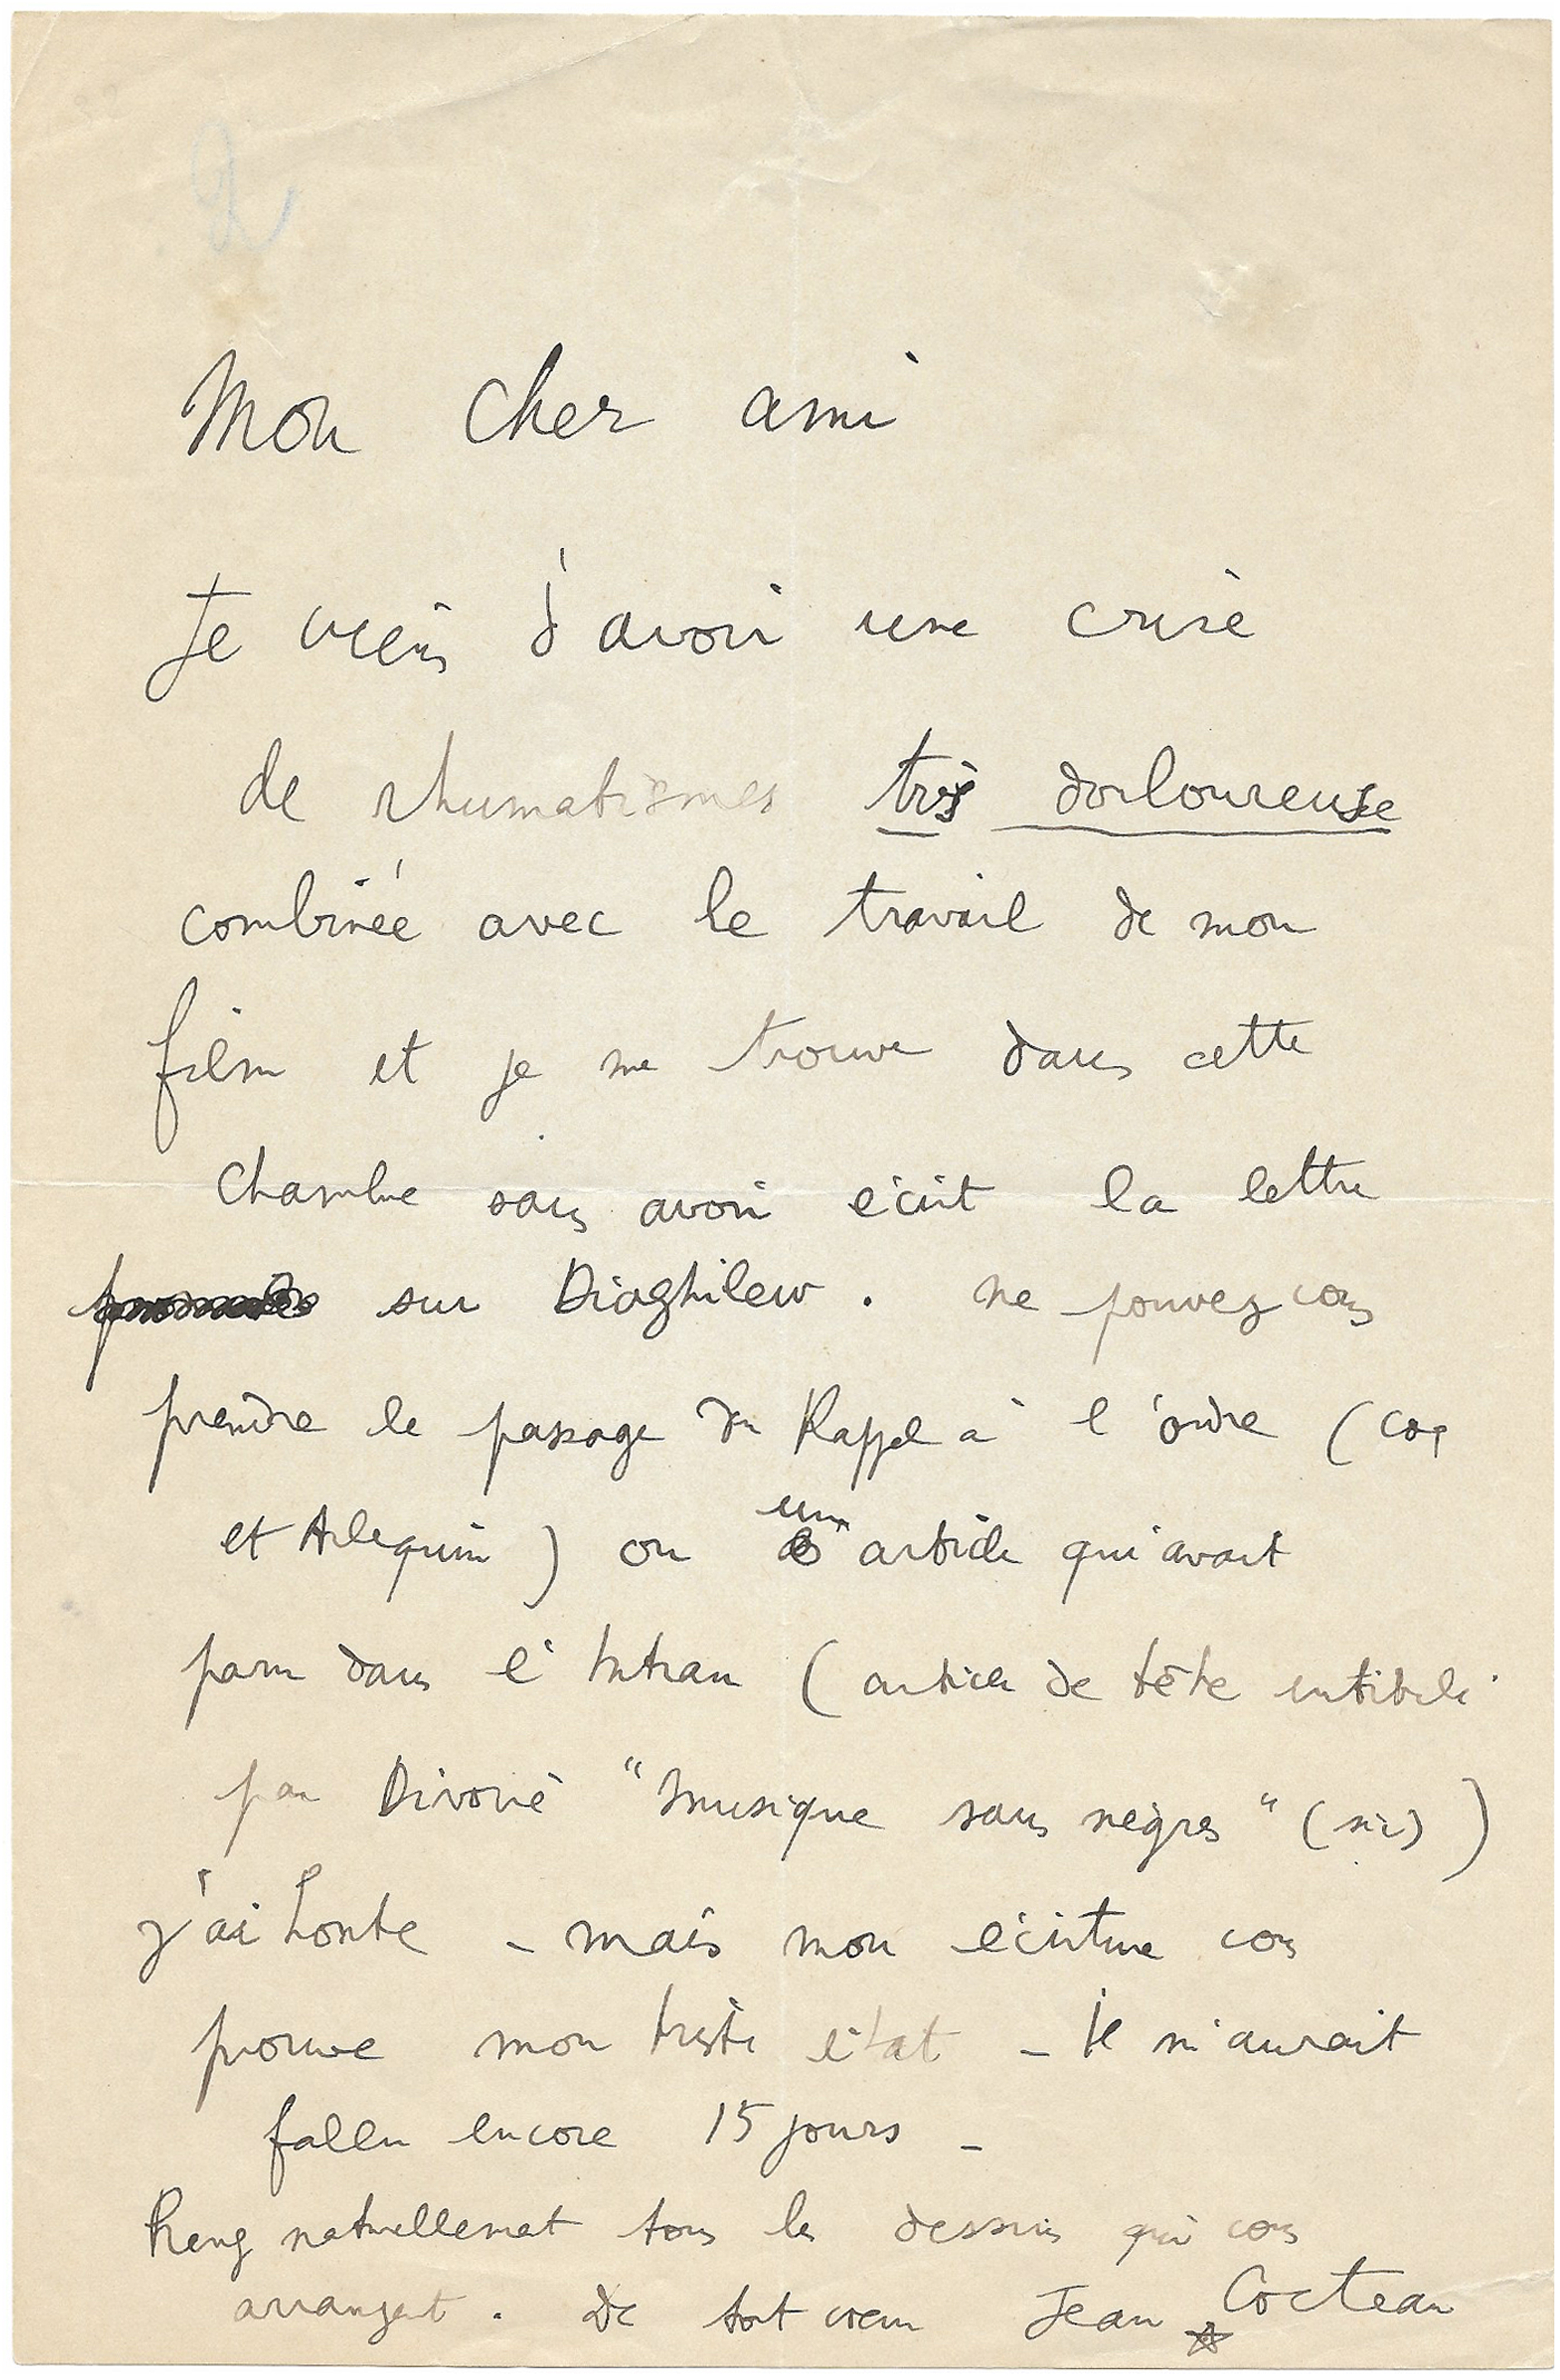 2
Mon cher ami
Je viens d'avoir une crise
de rhumatismes très douloureuse
combinée avec le travail de mon
film et je me trouve dans cette
chambre sans avoir écrit la lettre
sur Diaghilew. Ne pouvez vous
prendre le passage du Rappel à l'ordre (Coq
et Arlequin) ou un article qui avait
paru dans l'Intran (article de tête intitulé
par Divoire "Musique sans nègres" (sic))
J'ai honte - mais mon écriture vous
prouve mon triste état - Il m'aurait
fallu encore 15 jours -
Prenez naturellement tous les dessins qui vous
arrangent. De tout cœur Jean Cocteau